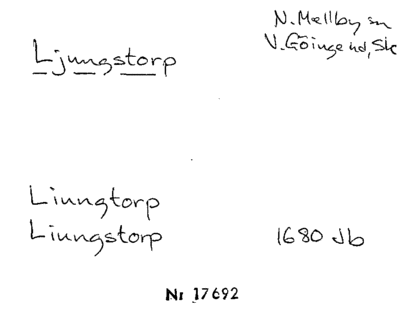 Ljungstorp
N. Mellby sn
V. Göinge hd, Sk
Liungtorp
Liungstorp 1680 Jb
Nr 17692